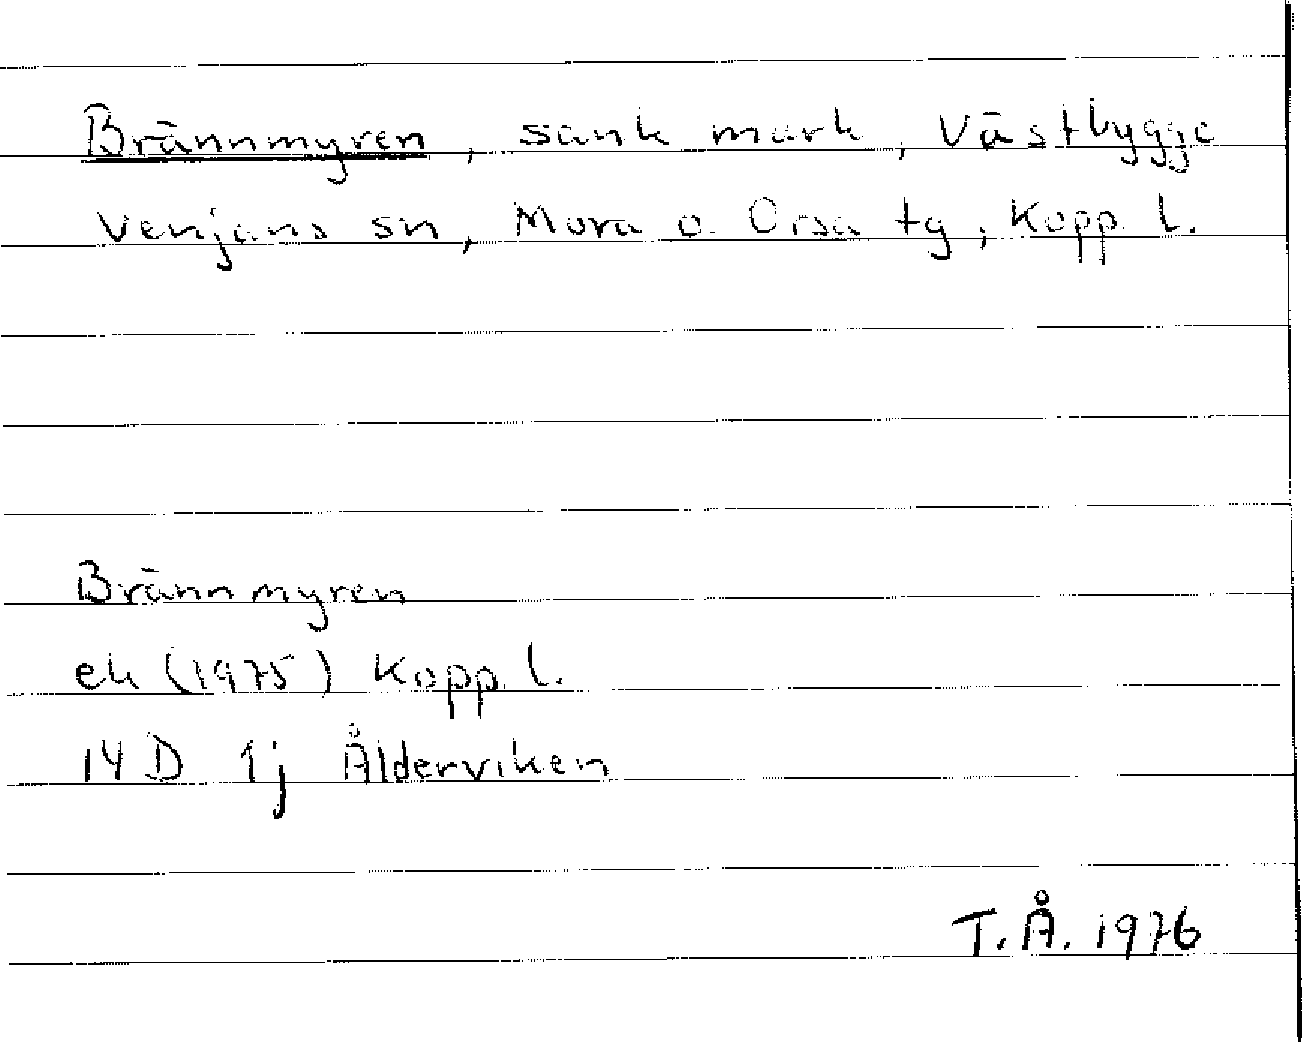 Brännmyren, sank mark, Västbygge
Venjans sn, Mora o. Orsa tg, Kopp. l.
Brännmyren
ek (1975) Kopp. l.
14 D 1j Ålderviken
T.Å. 1976